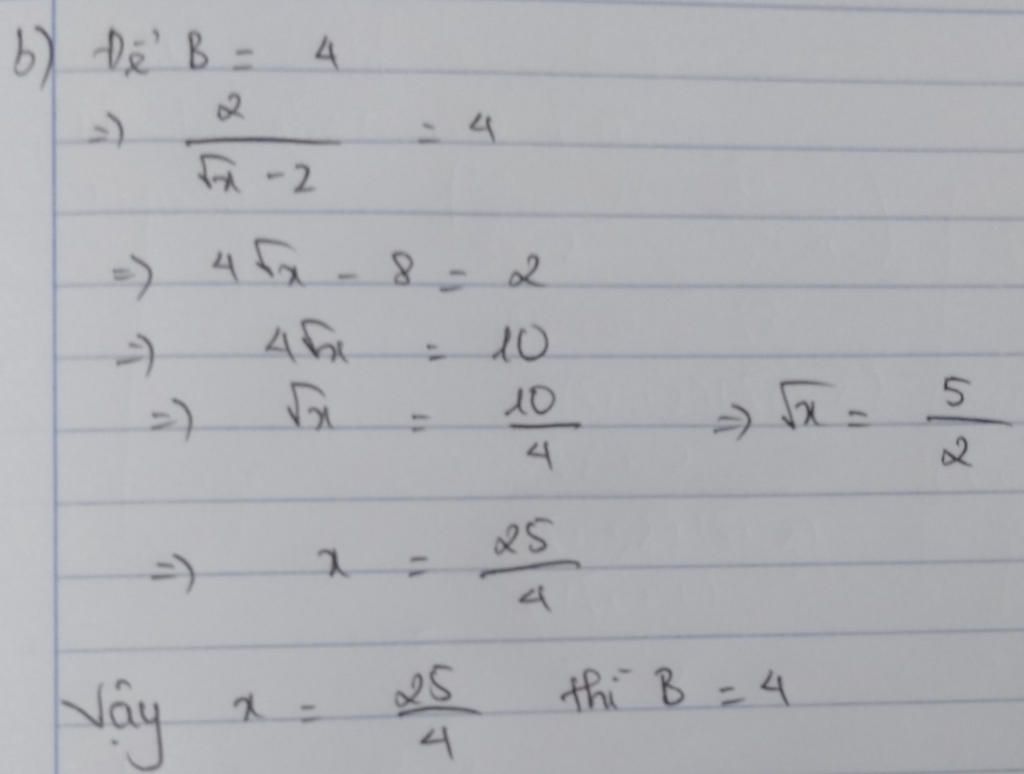 b) Để B = 4
=) 2/(√x - 2) = 4
=) 4√x - 8 = 2
=) 4√x = 10
=) √x = 10/4 => √x = 5/2
=) x = 25/4
Vậy x = 25/4 thì B = 4